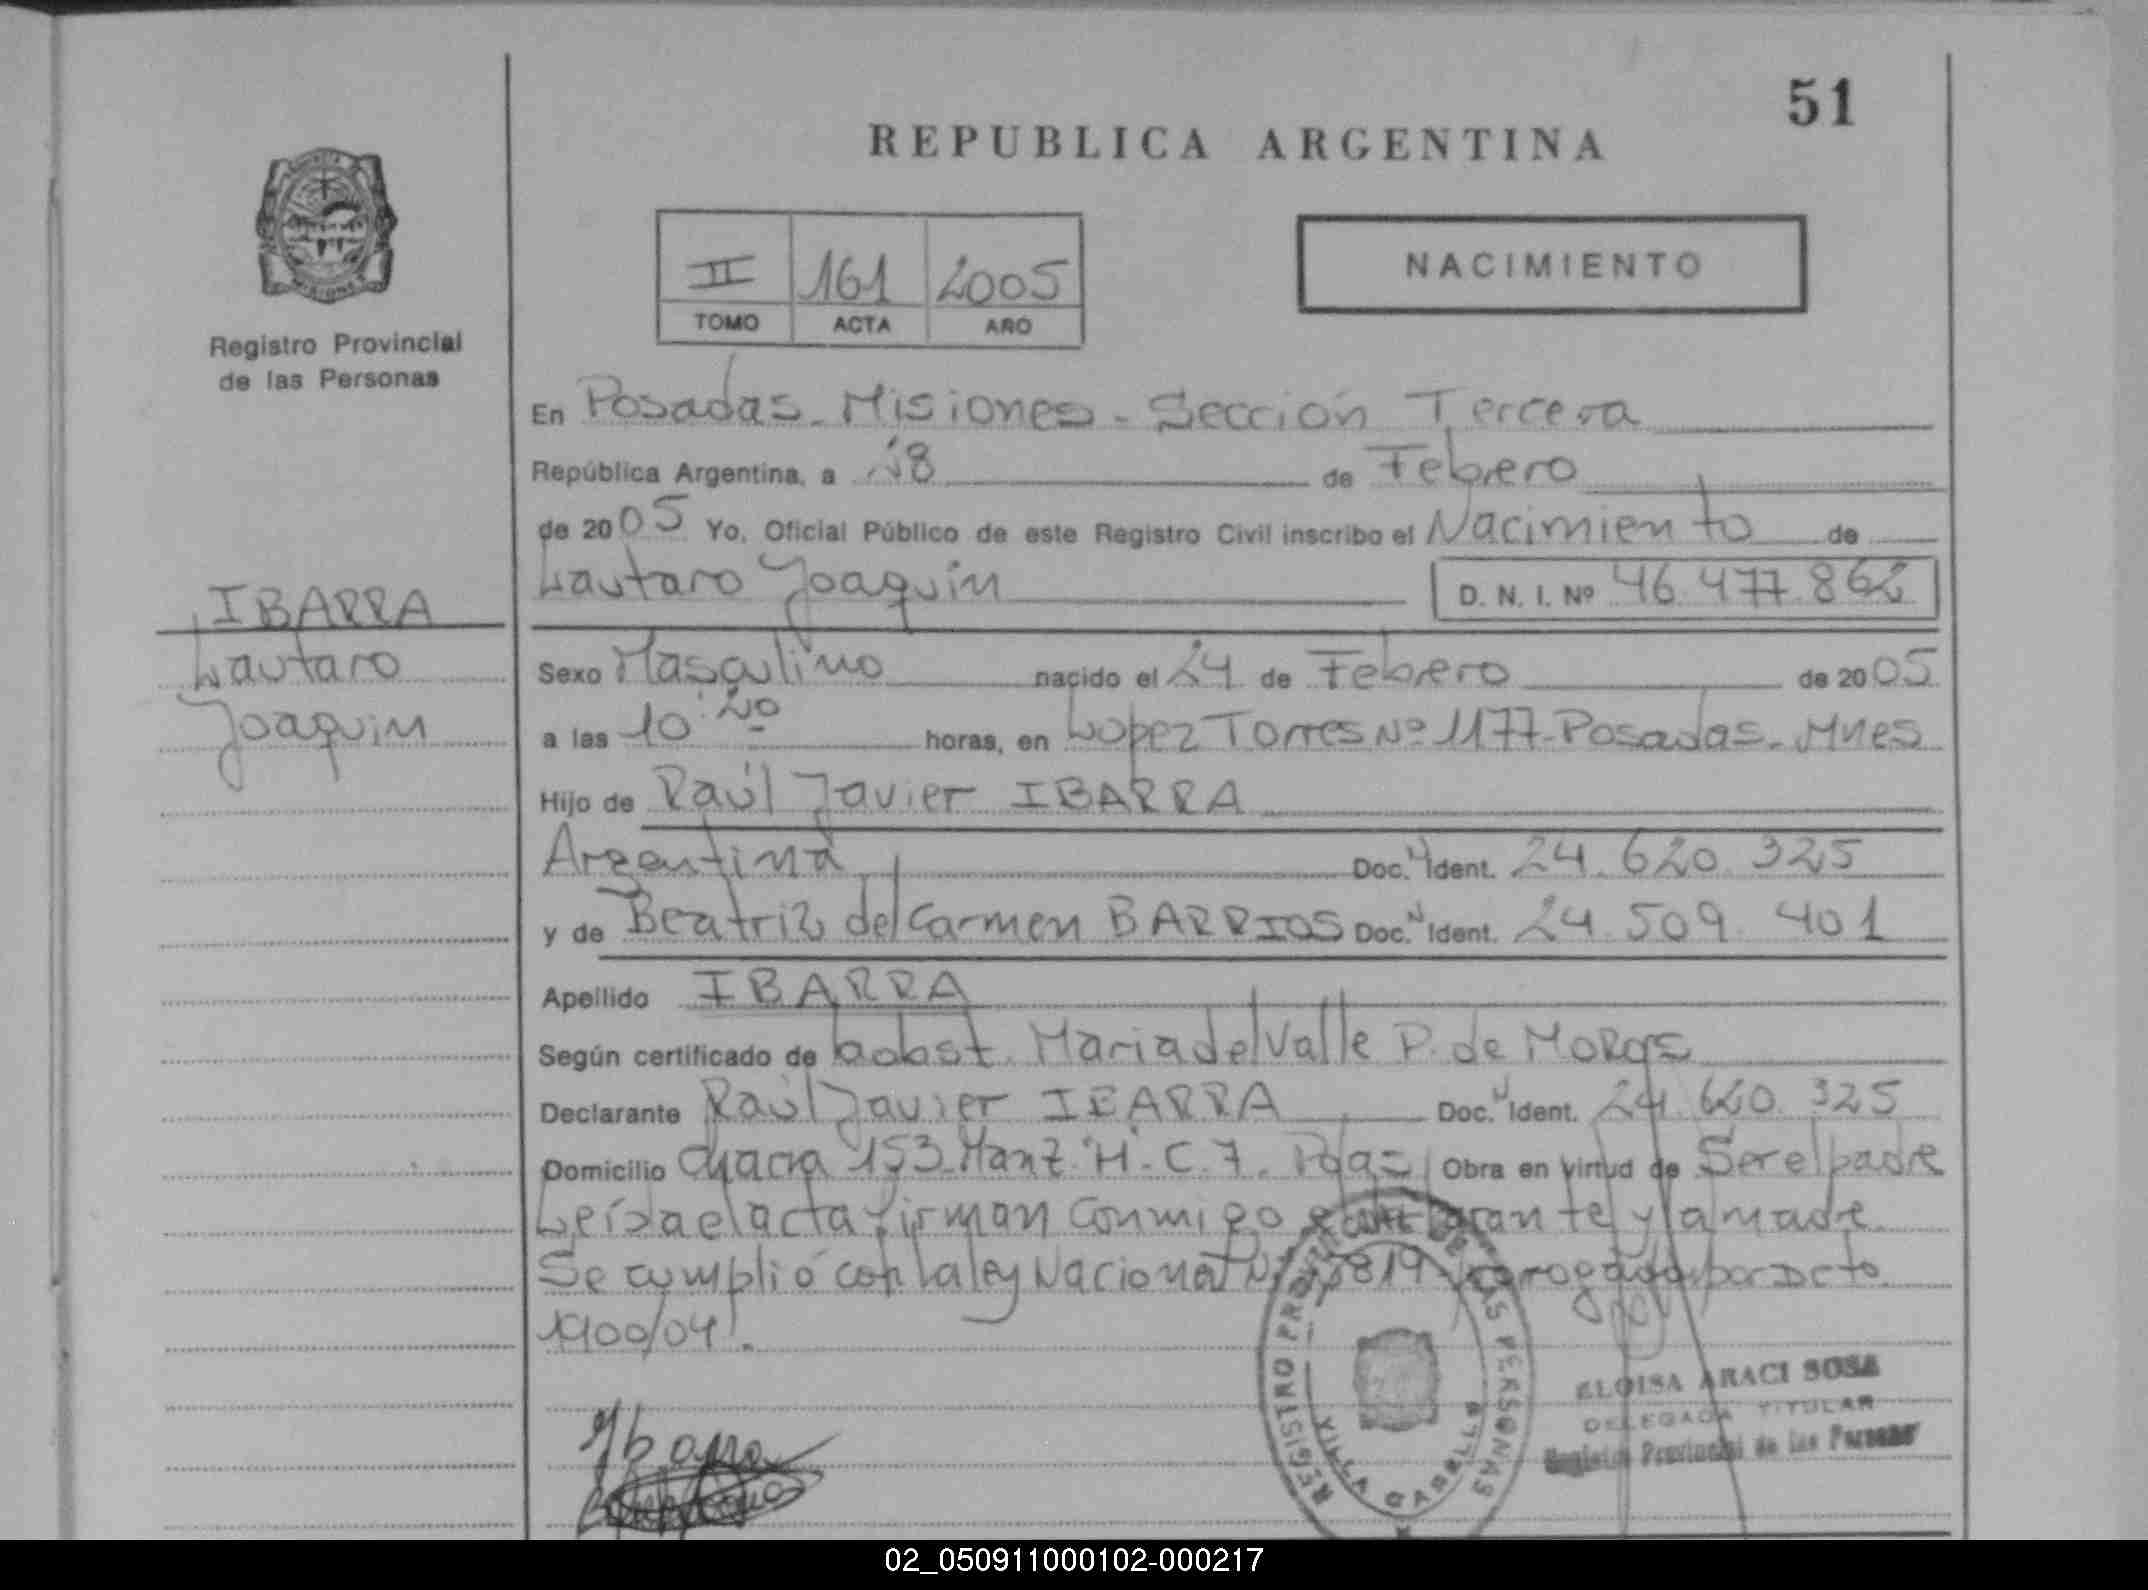 51
REPUBLICA ARGENTINA
II 161 2005
TOMO ACTA AÑO
NACIMIENTO
Registro Provincial
de las Personas
En Posadas - Misiones - Sección Tercera
República Argentina, a 28 de Febrero
de 2005 Yo, Oficial Público de este Registro Civil inscribo el Nacimiento de
Lautaro Joaquín D. N. I. Nº 46.477.862
IBARRA
Lautaro
Joaquín
Sexo Masculino nacido el 24 de Febrero de 2005
a las 10:20 horas, en Lopez Torres Nº 1177 - Posadas - Mnes
Hijo de Raúl Javier IBARRA
Argentina Doc. Ident. 24.620.325
y de Beatriz del Carmen BARRIOS Doc. Ident. 24.509.401
Apellido IBARRA
Según certificado de Maria del Valle P. de
Declarante Raúl Javier IBARRA Doc. Ident. 24.620.325
Domicilio Chacra 153 Manz. "H" - C. 7 - Pdas Obra en virtud de Ser el padre
Leída el acta firman conmigo el declarante y la madre
Se cumplió con la ley Nacional por Dcto
1900/04.
Ibarra
REGISTRO PROVINCIAL DE LAS PERSONAS
VILLA CABELLO
ELOISA ARACI SOSA
DELEGADA TITULAR
Registro Provincial de las Personas
02_050911000102-000217